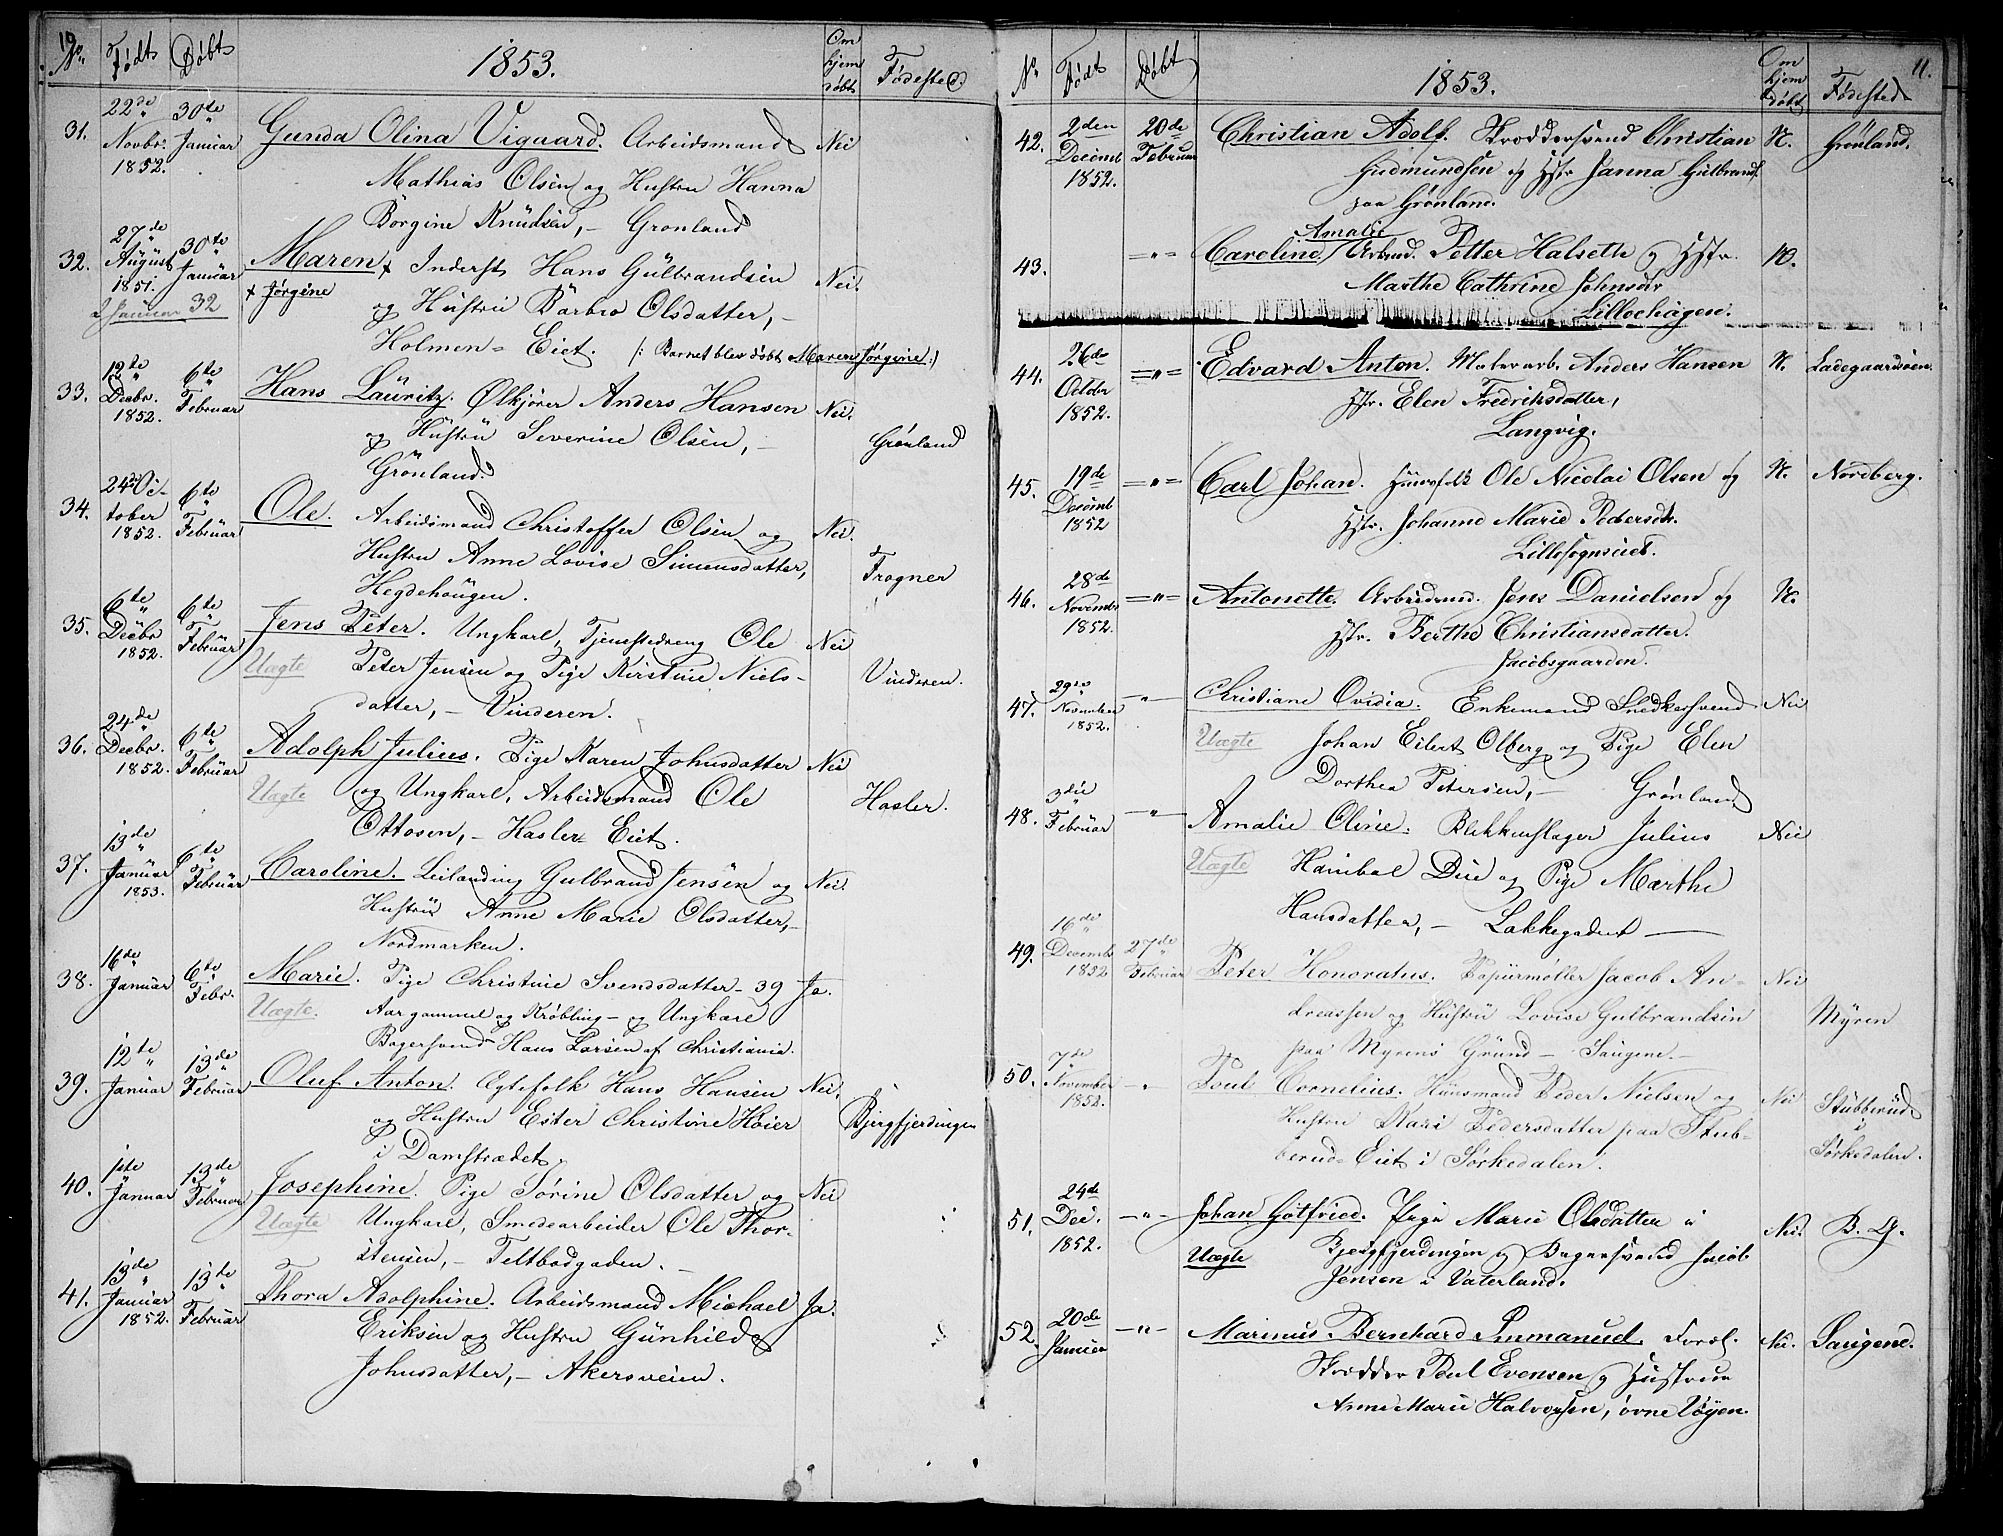 10
No. Födt Döbt 1853. Om hjem döbt Födested
31. 22de Novbr. 1852. 30te Januar Gunda Olina Vigaard. Arbeidsmand Nei
Mathias Olsen og Hustru Hanna
Börgine Knudsen, - Grønland
32. 27de August 1851. 30te Januar Maren + Inderst Hans Gulbrandsen Nei.
2 Januar 32
+ Jørgine
og Hustru Barbro Olsdatter, -
Holmen - Eiet. /: Barnet blev döbt Maren Jørgine :/
33. 12te Decbr. 1852. 6te Februar Hans Lauritz. Ølkjører Anders Hansen Nei.
og Hustru Severine Olsen, - Grønland
Grønland.
34. 24de October 1852. 6te Februar Ole. Arbeidsmand Christoffer Olsen og Nei.
Hustru Anne Lovise Simensdatter, Frogner
Hegdehougen.
35. 6te Decbr 1852. 6te Februar Jens Peter. Ungkarl, Tjenestedreng Ole Nei
Uægte Peter Jensen og Pige Kirstine Niels- Vinderen.
datter, - Vinderen.
36. 24de Decbr. 1852. 6te Februar Adolph Julius. Pige Karen Johnsdatter Nei
Uægte og Ungkarl, Arbeidsmand Ole Hasler.
Ottosen, - Hasler Eiet.
37. 13de Januar 1853. 6te Februar Caroline. Leilænding Gulbrand Jensen og Nei.
Hustru Anne Marie Olsdatter, -
Nordmarken.
38. 16de Januar 6te Febr. Marie. Pige Christine Svendsdatter - 39 Ja.
Uægte. Aar gammel og Krøbling - og Ungkarl
Bagersvend Hans Larsen af Christiania.
39. 12te Januar 13de Februar Oluf Anton. Egtefolk Hans Hansen Nei.
og Hustru Ester Christine Høier Bjergfjerdingen
i Damstrædet.
40. 1ste Januar 13de Februar Josephine. Pige Sørine Olsdatter og Nei
Uægte Ungkarl, Smedearbeider Ole Thor-
stensen, - Teltbodgaden.
41. 13de Januar 1852. 13de Februar Thora Adolphine. Arbeidsmand Michael Ja.
Eriksen og Hustru Gunhild
Johnsdatter, - Akersveien.
11.
No Födt Döbt 1853. Om hjem döbt Födested
42. 2den Decemb 1852. 20de Februar Christian Adolf. Skræddersvend Christian N. Grønland.
Gudmundsen og Hstr Janna Gulbrands.
paa Grønland.
Amalie
43. -"- Caroline. Arbmd. Petter Halseth og Hstr. N.
Marthe Cathrine Johnsdr
Lillochagen.
44. 26de Octobr 1852. -"- Edvard Anton. Malerarb. Anders Hansen N. Ladegaardsöen.
Hstr. Elen Fredriksdatter,
Langvig.
45. 19de Decemb 1852 -"- Carl Johan. Huusfolk Ole Nicolai Olsen og N. Nordberg.
Hstr. Johanne Marie Pedersdtr.
Lillesogneiet.
46. 28de Novembr 1852. -"- Antonette. Arbeidsmd. Jens Danielsen og N.
Hstr. Berthe Christiansdatter.
Jacobsgaarden.
47. 29de November 1852. -"- Christiane Ovidia. Enkemand Snedkersvend Nei
Uægte Johan Eilert Olberg og Pige Elen
Dorthea Petersen, - Grønland
48. 3die Februar -"- Amalie Oline. Blikkenslager Julius Nei
Uægte Hanibal Due og Pige Marthe
Hansdatter, - Lakkegaden -
49. 16de Decemb 1852 27de Februar Peter Honoratus. Papirmøller Jacob An- Nei
dreassen og Hustru Lovise Gulbrandsen Myren
paa Myrens Grund - Saugene. -
50. 7de November 1852. -"- Poul Cornelius. Huusmand Peder Nielsen og Nei Stubberud
Hustru Kari Pedersdatter paa Stub- i
berud - Eiet i Sørkedalen. Sørkedalen.
51. 24de Dec. 1852. -"- Johan Gotfried. Pige Marie Olsdatter i Nei. B. G.
Uægte Bjergfjerdingen og Bagersvend Jacob
Jensen i Vaterland.
52. 20de Januar -"- Marinus Bernhard Immanuel. Foræl. Nei. Saugene.
Skrædder Poul Evensen og Hustrue
Anne Marie Halvorsen, øvne Vøyen.